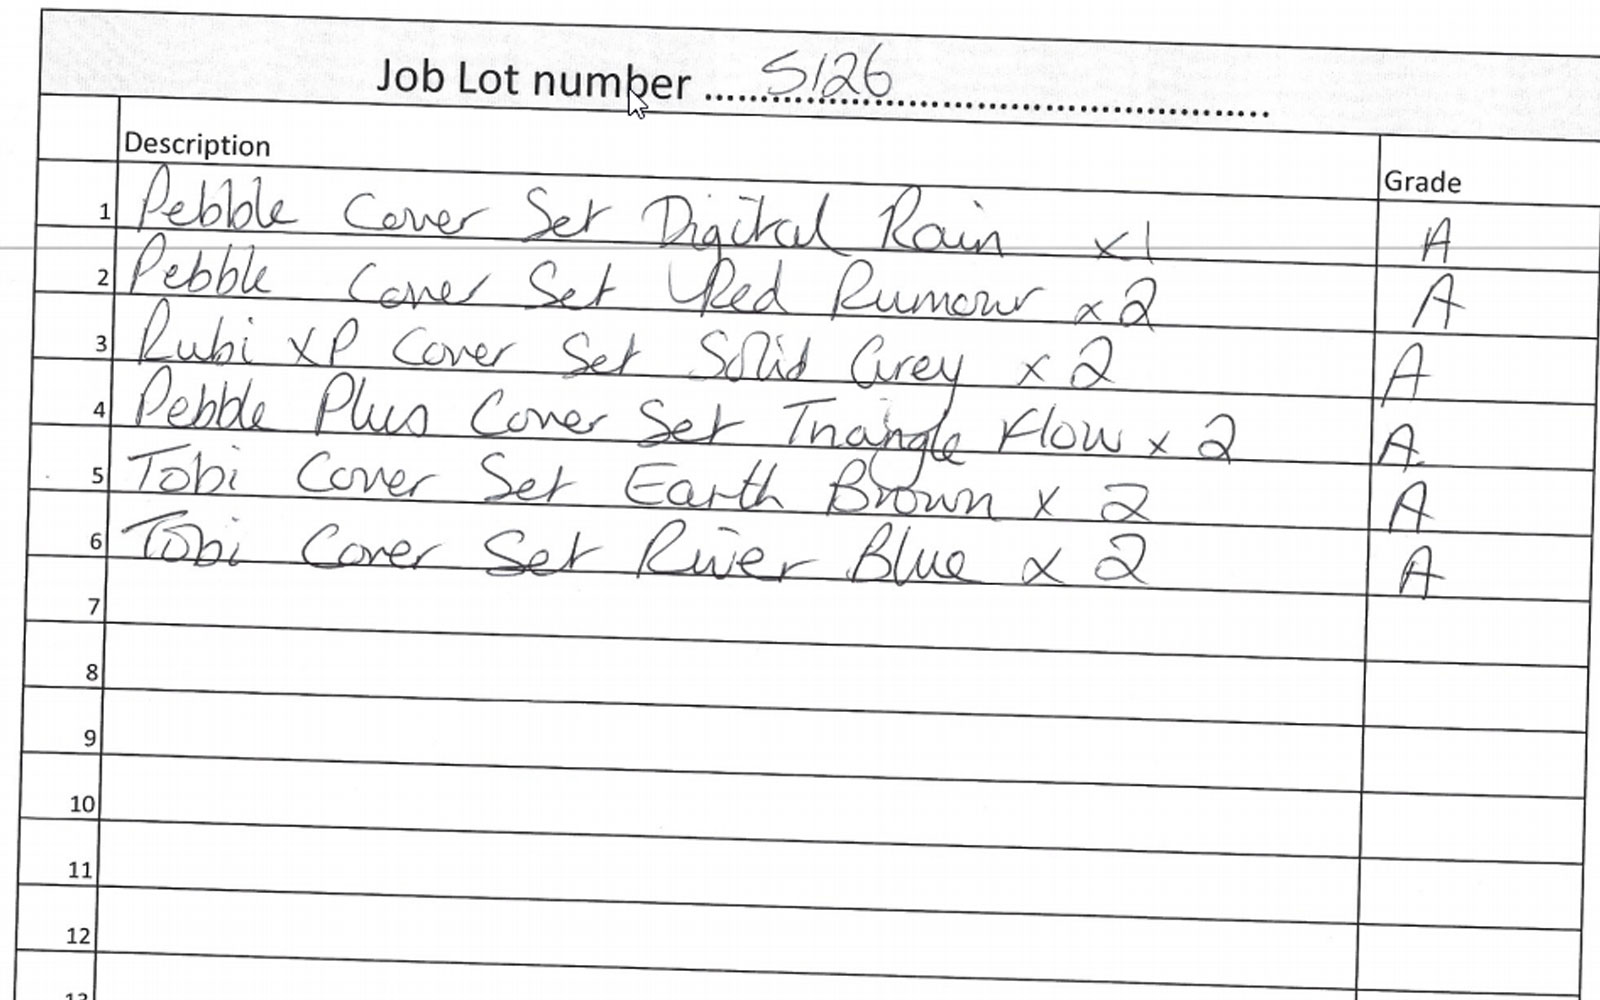 Job Lot number ........ 5126
Description Grade
1 Pebble Cover Set Digital Rain x1 A
2 Pebble Cover Set Red Rumour x2 A
3 Rubi XP Cover Set Solid Grey x 2 A
4 Pebble Plus Cover Set Triangle Flow x 2 A
5 Tobi Cover Set Earth Brown x 2 A
6 Tobi Cover Set River Blue x 2 A
7
8
9
10
11
12
13